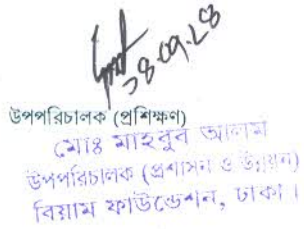 ২৪.০৭.২৪
উপপরিচালক (প্রশিক্ষণ)
মোঃ মাহবুব আলম
উপপরিচালক (প্রশাসন ও উন্নয়ন)
বিয়াম ফাউন্ডেশন, ঢাকা।